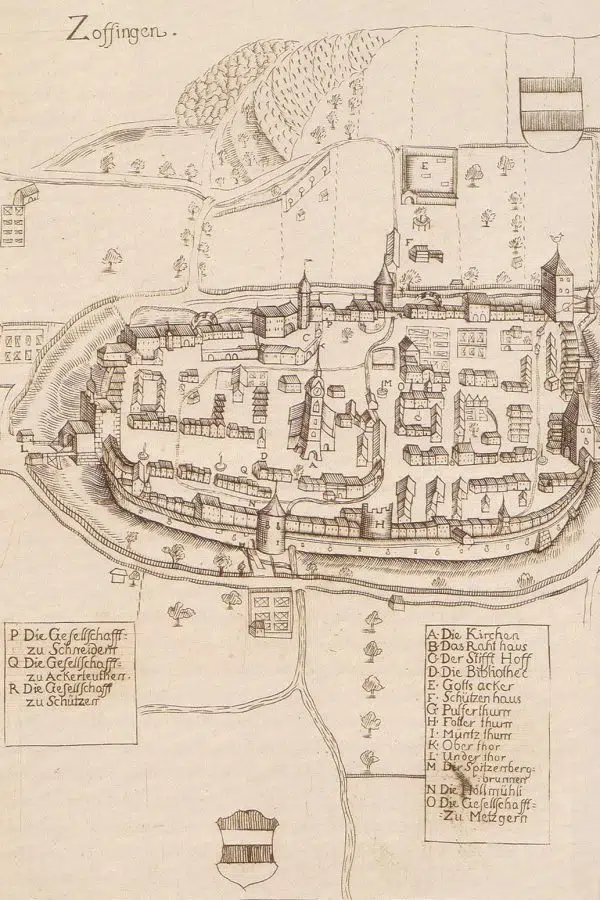 Zoffingen.
E
F
C
P
M
O
L
A
D
Q
N
I
H
P Die Gesellschafft=
zu Schneidern
Q Die Gesellschafft=
zu Ackerleuthen.
R Die Gesellschaff
zu Schützen
A· Die Kirchen
B· Das Raht haus
C· Der Stifft Hoff
D· Die Bibliothec
E· Gotts acker
F· Schützen haus
G· Pulferthurn
H· Folter thurn
I· Müntz thurn
K· Ober thor
L· Under thor
M· Der Spitzenberg=
brunnen
N Die Höllmühli
O Die Gesellschafft=
Zu Metzgern